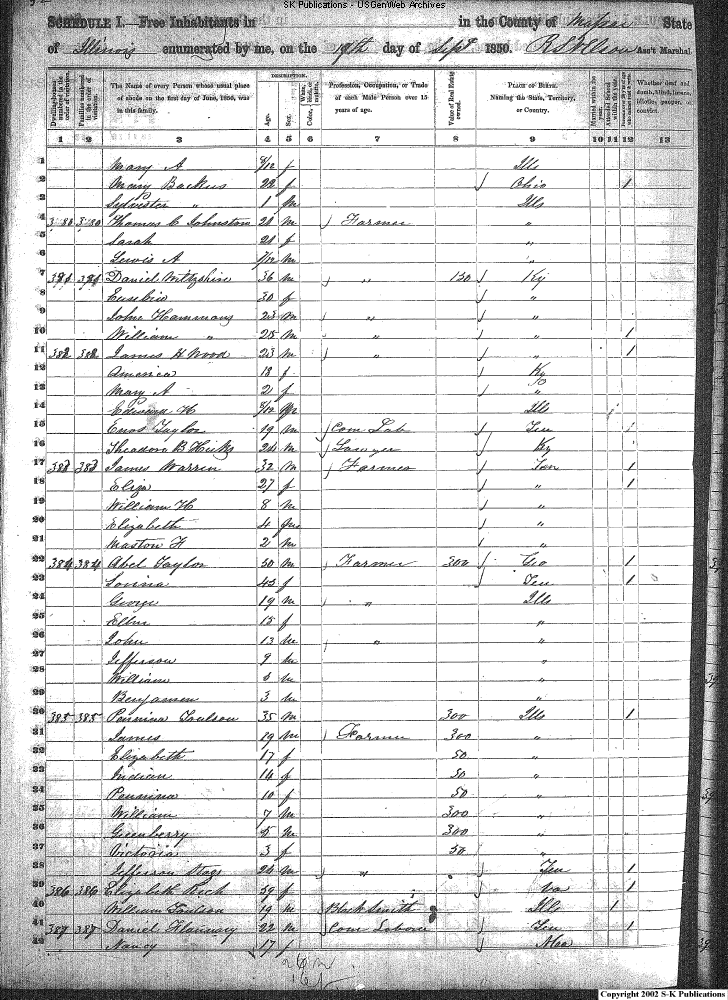 S-K Publications - USGenWeb Archives
SCHEDULE I.—Free Inhabitants in in the County of Massac State
of Illinois enumerated by me, on the 19th day of Sept 1850. Ass't Marshal.
DESCRIPTION.
Dwelling-houses numbered in the order of visitation. Families numbered in the order of visitation. The Name of every Person whose usual place of abode on the first day of June, 1850, was in this family. Age. Sex. Color, White, black, or mulatto. Profession, Occupation, or Trade of each Male Person over 15 years of age. Value of Real Estate owned. PLACE OF BIRTH. Naming the State, Territory, or Country. Married within the year. Whether deaf and dumb, blind, insane, idiotic, pauper, or convict.
1 2 3 4 5 6 7 8 9 10 11 12 13
1 Mary A 8/12 f Ills
2 Mary Backus 22 f Ohio 1
3 Sylvester " 1 m Ills
4 380 380 Thomas C Johnston 28 m Farmer "
5 Sarah 21 f "
6 Lewis A m "
7 381 381 Daniel 36 m " 150 Ky
8 30 f "
9 John Hammons 23 m " "
10 William " 25 m " " 1
11 382 382 James H Wood 23 m " " 1
12 America 18 f Ky
13 Mary A 2 f "
14 Edward H 8/12 m Ills
15 Enos Taylor 19 m Com Lab Ten 1
16 Theodore B Hicks 24 m Lawyer Ky 1
17 383 383 James Warren 32 m Farmer Ten 1
18 Eliza 27 f " 1
19 William H 8 m "
20 Elizabeth 4 "
21 Maston F 2 m "
22 384 384 Abel Taylor 50 m Farmer 300 Geo 1
23 Lovina 45 f Ten 1
24 George 19 m " Ills
25 Ellen 15 f "
26 John 13 m " "
27 Jefferson 9 m "
28 William m "
29 Benjamin 3 m "
30 385 385 Pennina Toulson 35 m 300 Ills 1
31 James 19 m Farmer 300 "
32 Elizabeth 17 f 50 "
33 Indian 14 f 50 "
34 Pennina 10 f 50 "
35 William 7 m 300 "
36 Greenberry 5 m 300 "
37 Victoria 3 f 50 "
38 Jefferson 24 m " Ten 1
39 386 386 Elizabeth Rich 59 f Va 1
40 William Toulson 19 m Black Smith Ills 1
41 387 387 Daniel Flannary 22 m Com Labor Ten 1
42 Nancy 17 f Mo
26 m
16 f
Copyright 2002 S-K Publications